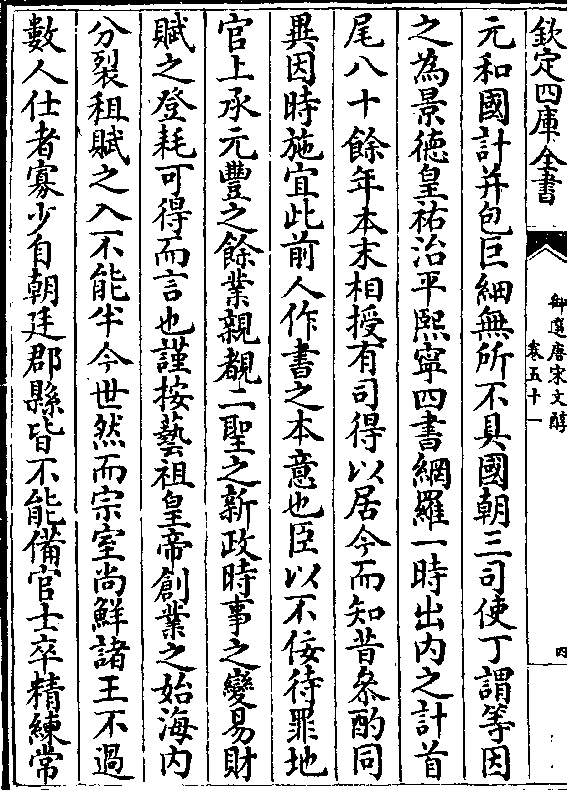 欽定四庫全書
御選唐宋文醇
卷五十一
四
元和國計并包巨細無所不具國朝三司使丁謂等因
之為景德皇祐治平熙寧四書網羅一時出內之計首
尾八十餘年本末相授有司得以居今而知昔參酌同
異因時施宜此前人作書之本意也臣以不佞待罪地
官上承元豐之餘業親覩二聖之新政時事之變易財
賦之登耗可得而言也謹按藝祖皇帝創業之始海內
分裂租賦之入不能半今世然而宗室尚鮮諸王不過
數人仕者寡少自朝廷郡縣皆不能備官士卒精練常